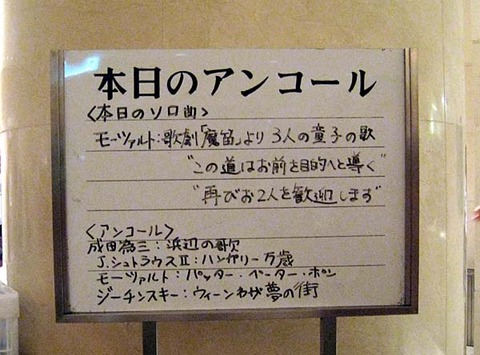 本日のアンコール
<本日のソロ曲>
モーツァルト:歌劇「魔笛」より 3人の童子の歌
"この道はお前を目的へと導く"
"再びお2人を歓迎します"
<アンコール>
成田為三:浜辺の歌
J.シュトラウスⅡ:ハンガリー万歳
モーツァルト:パッター・ベーター・ポン
ジーチンスキー:ウィーンわが夢の街